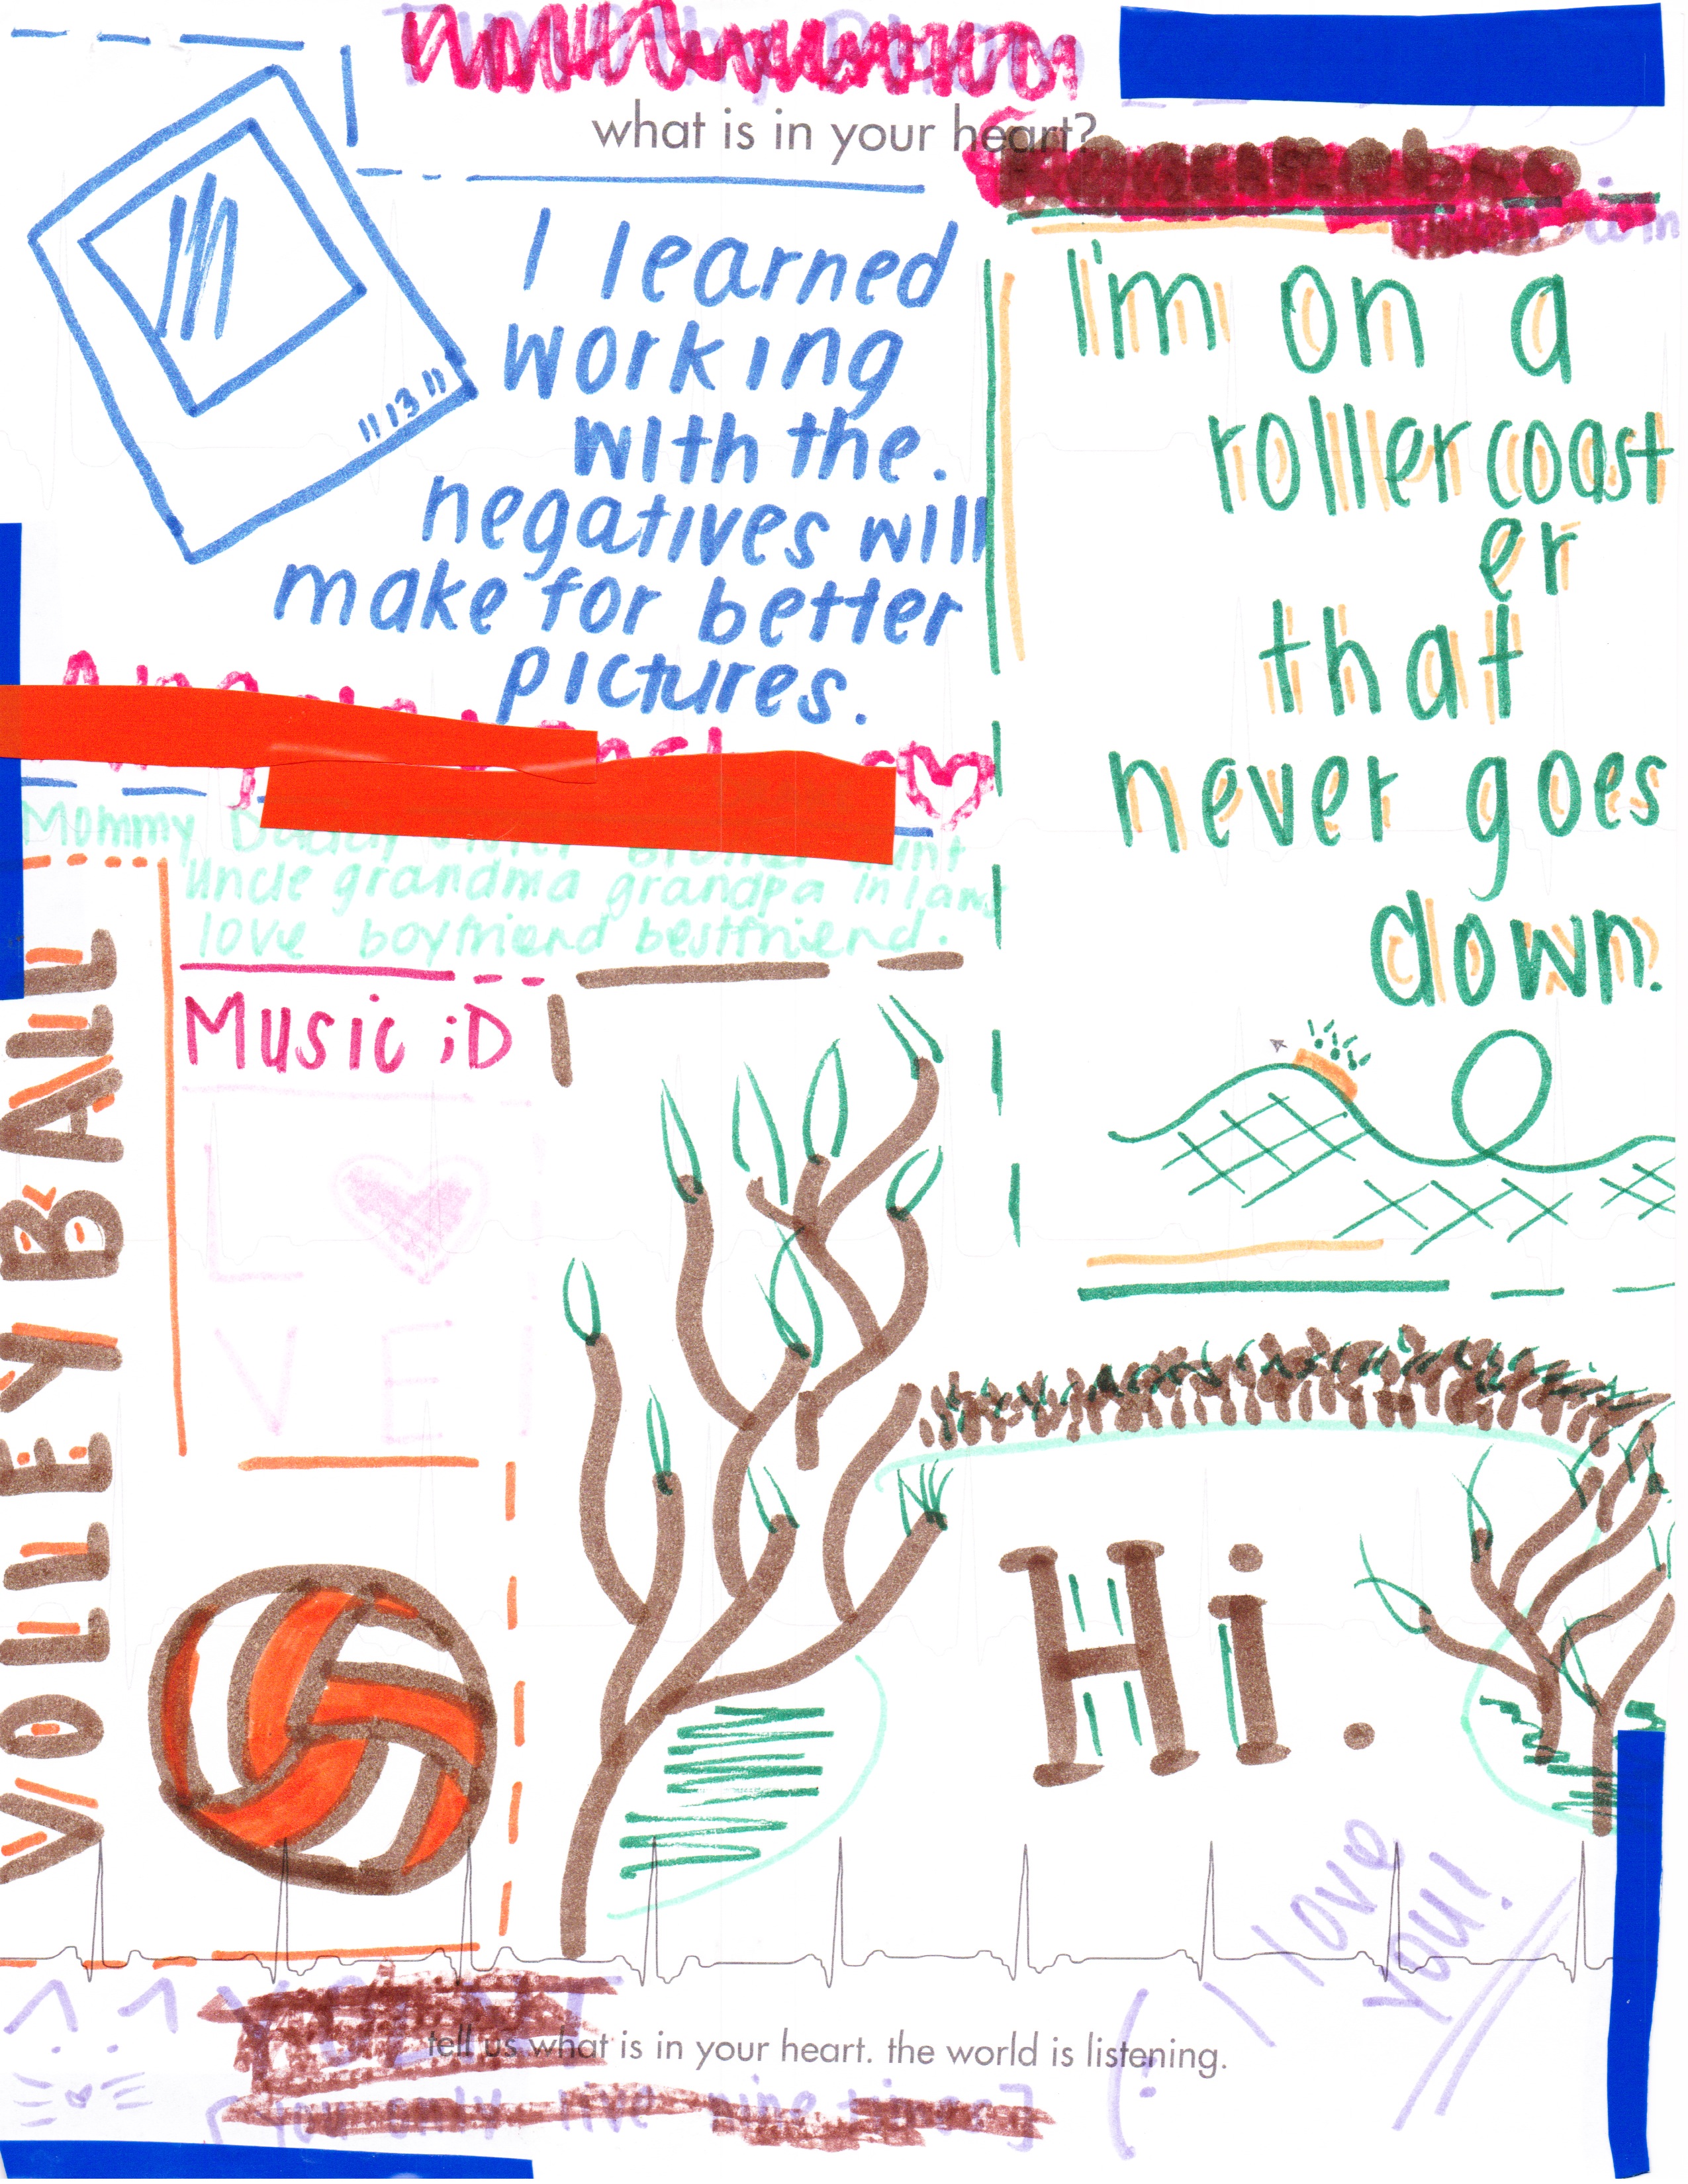 what is in your heart?
I learned
working
with the.
negatives will
make for better
pictures.
"13"
I'm on a
rollercoast
er
that
never goes
down.
Mommy Daddy
Uncle grandma grandpa in laws
love boyfriend bestfriend.
VOLLEYBALL
Music ;D
L
VE
Hi.
I love
you!
(:
tell us what is in your heart. the world is listening.
[you only live nine times]